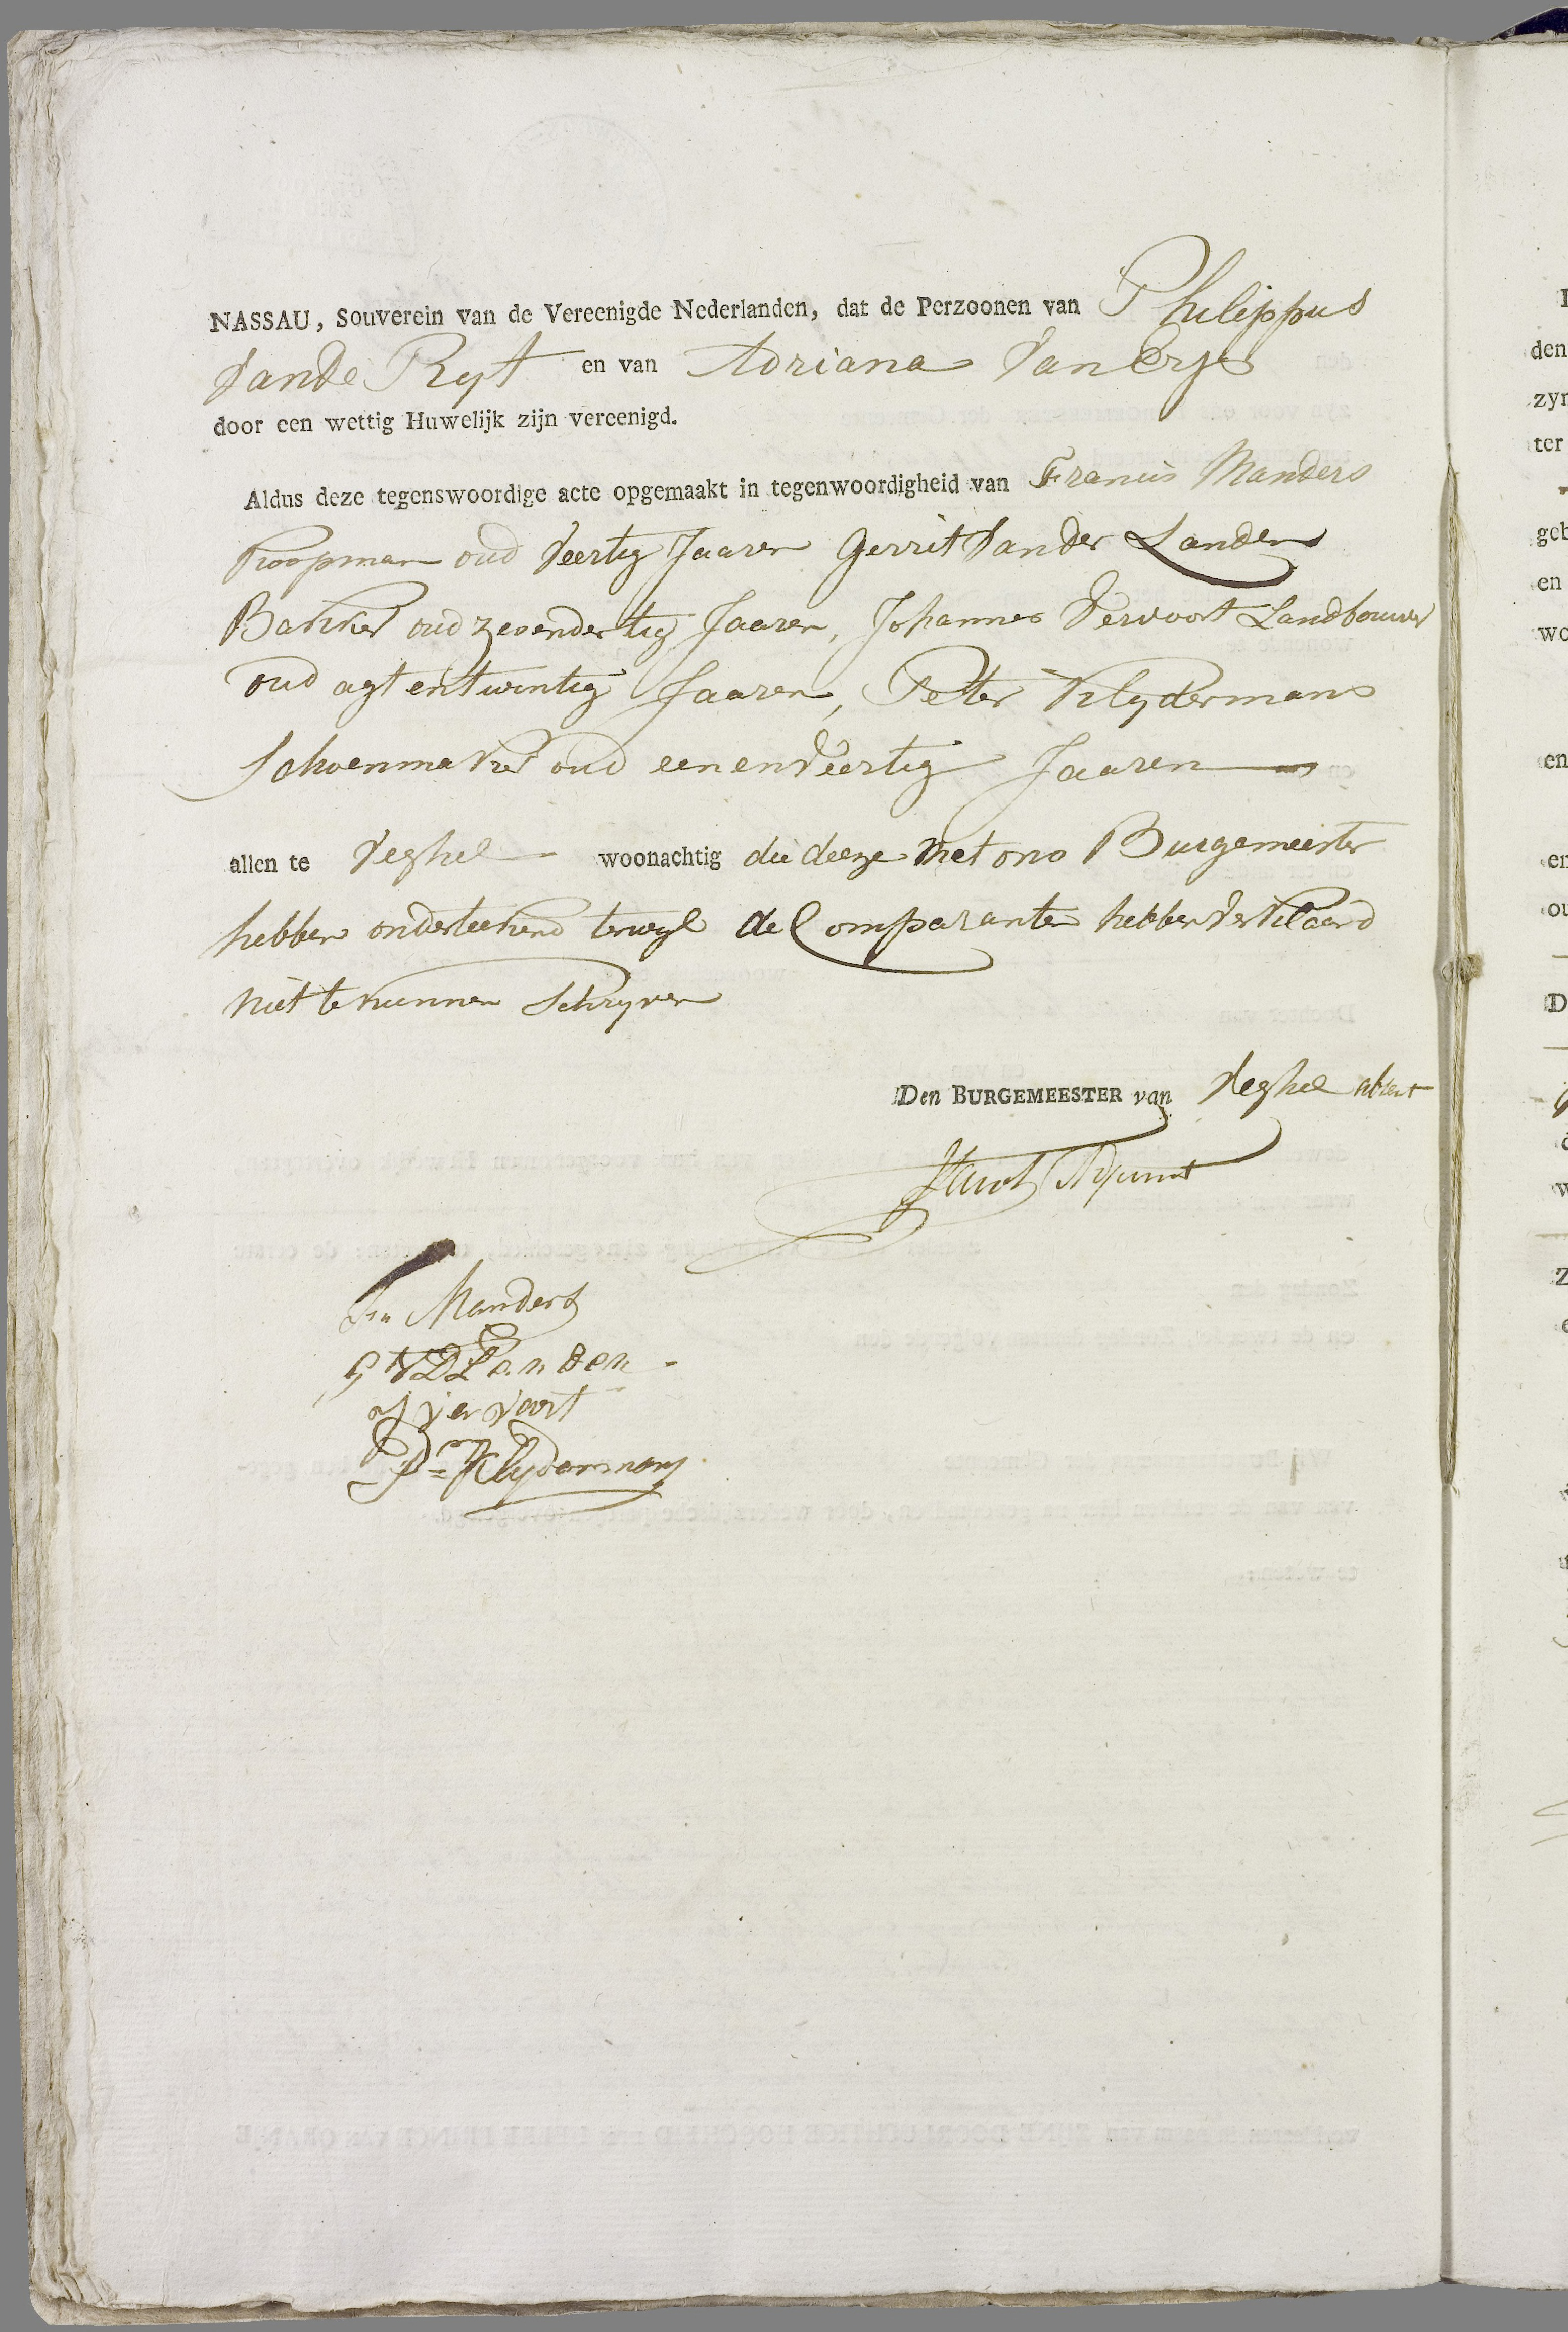 NASSAU, Souverein van de Vereenigde Nederlanden, dat de Perzoonen van Philippus
Vande Ryt en van Adriana Van Erp
door een wettig Huwelijk zijn vereenigd.
Aldus deze tegenswoordige acte opgemaakt in tegenwoordigheid van Francis Manders
Koopman oud Veertig Jaaren Gerrit Vander Landen
Bakker oud zevendertig Jaaren, Johannes Vervoort Landbouwer
oud agtentwintig Jaaren, Peter Klijdermans
Schoenmaker oud eenenveertig Jaaren
allen te Veghel woonachtig die deeze met ons Burgemeester
hebben onderteekend terwyl de Comparanten hebben Verklaard
niet te kunnen Schryven
Den BURGEMEESTER van Veghel absent
Adjunct
Fr. Manders
G V D Landen
J ver Voort
P. Klijdermans